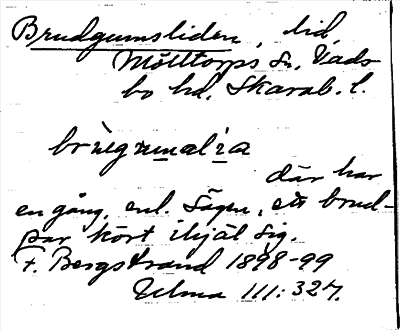 Brudgumsliden, lid,
Mölltorps Sn, Vads-
bo hd. Skarab. l.
brùegrumalìa
där har
en gång, enl. Sägen, ett brud-
par kört ihjäl sig.
F. Bergstrand 1898-99
Ulma 111:327.